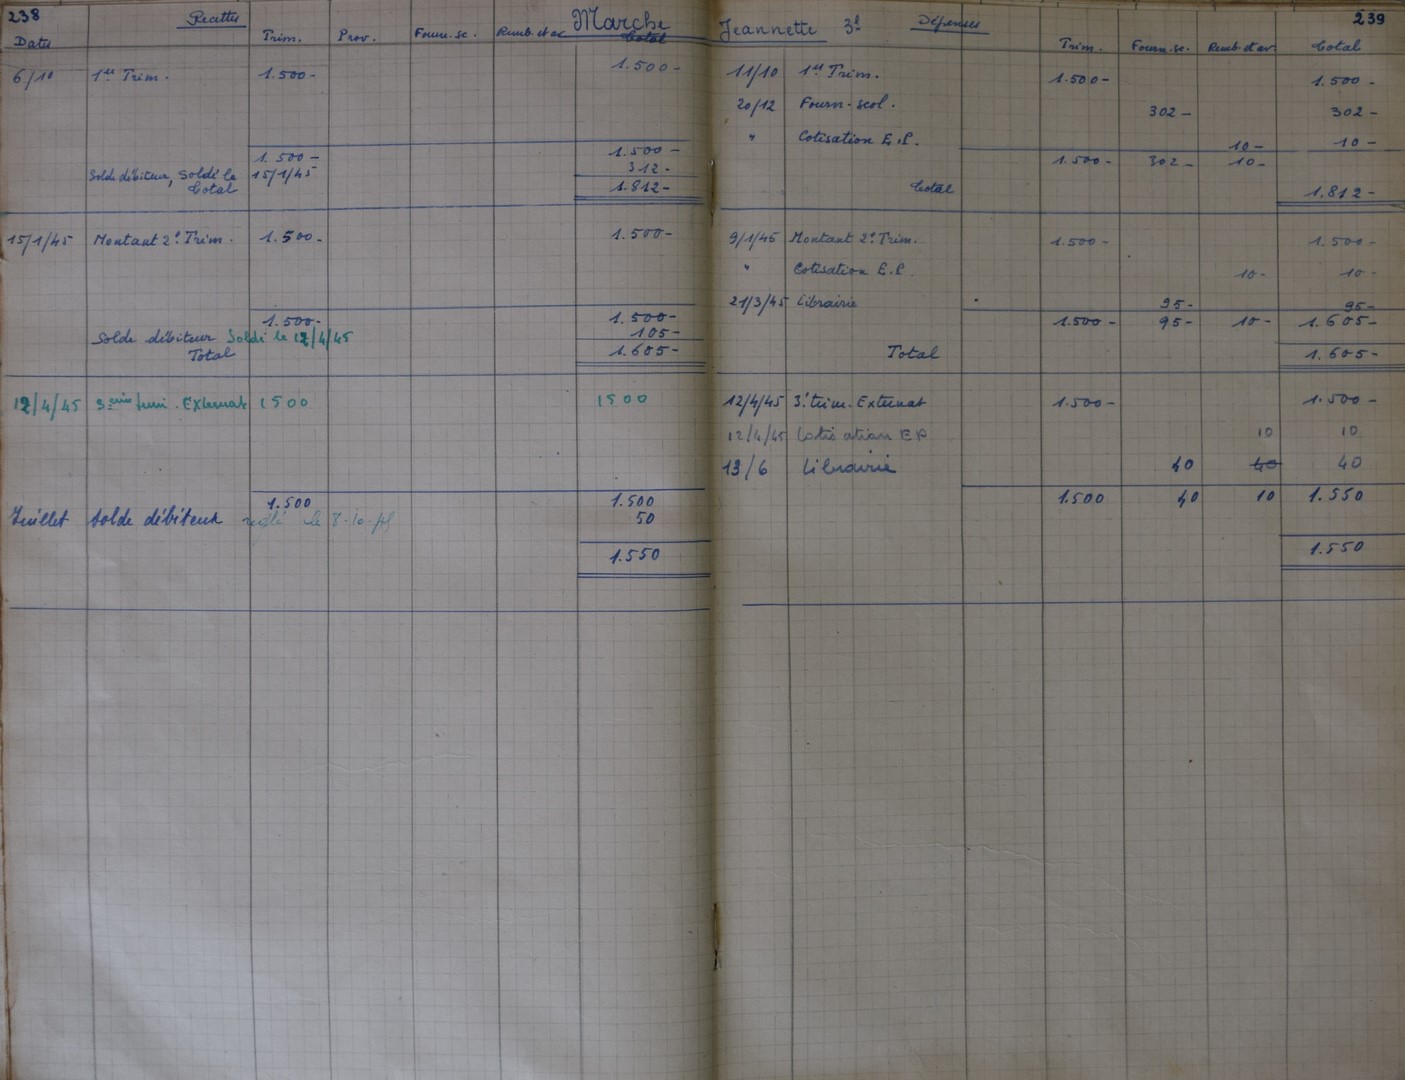 238 Recettes Marche
Dates Trim. Prov. Fourn. sc. Remb. et av. Total
6/10 1er Trim. 1.500- 1.500-
1.500- 1.500-
Solde débiteur, Soldé le 15/1/45 312-
Total 1.812-
15/1/45 Montant 2e Trim. 1.500- 1.500-
1.500- 1.500-
Solde débiteur Soldé le 12/4/45 105-
Total 1.605-
12/4/45 3ème trim. Externat 1500 1500
1.500 1.500
Juillet Solde débiteur réglé le 8-10-45 50
1.550
Jeannette 3e Dépenses 239
Trim. Fourn. sc. Remb. et av. Total
11/10 1er Trim. 1.500- 1.500-
20/12 Fourn. scol. 302- 302-
" Cotisation E.P. 10- 10-
1.500- 302- 10-
Total 1.812-
9/1/45 Montant 2e Trim. 1.500- 1.500-
" Cotisation E.P. 10- 10-
21/3/45 Librairie 95- 95-
1.500- 95- 10- 1.605-
Total 1.605-
12/4/45 3e trim. Externat 1.500- 1.500-
12/4/45 Cotisation EP 10 10
13/6 Librairie 40 40 40
1.500 40 10 1.550
1.550